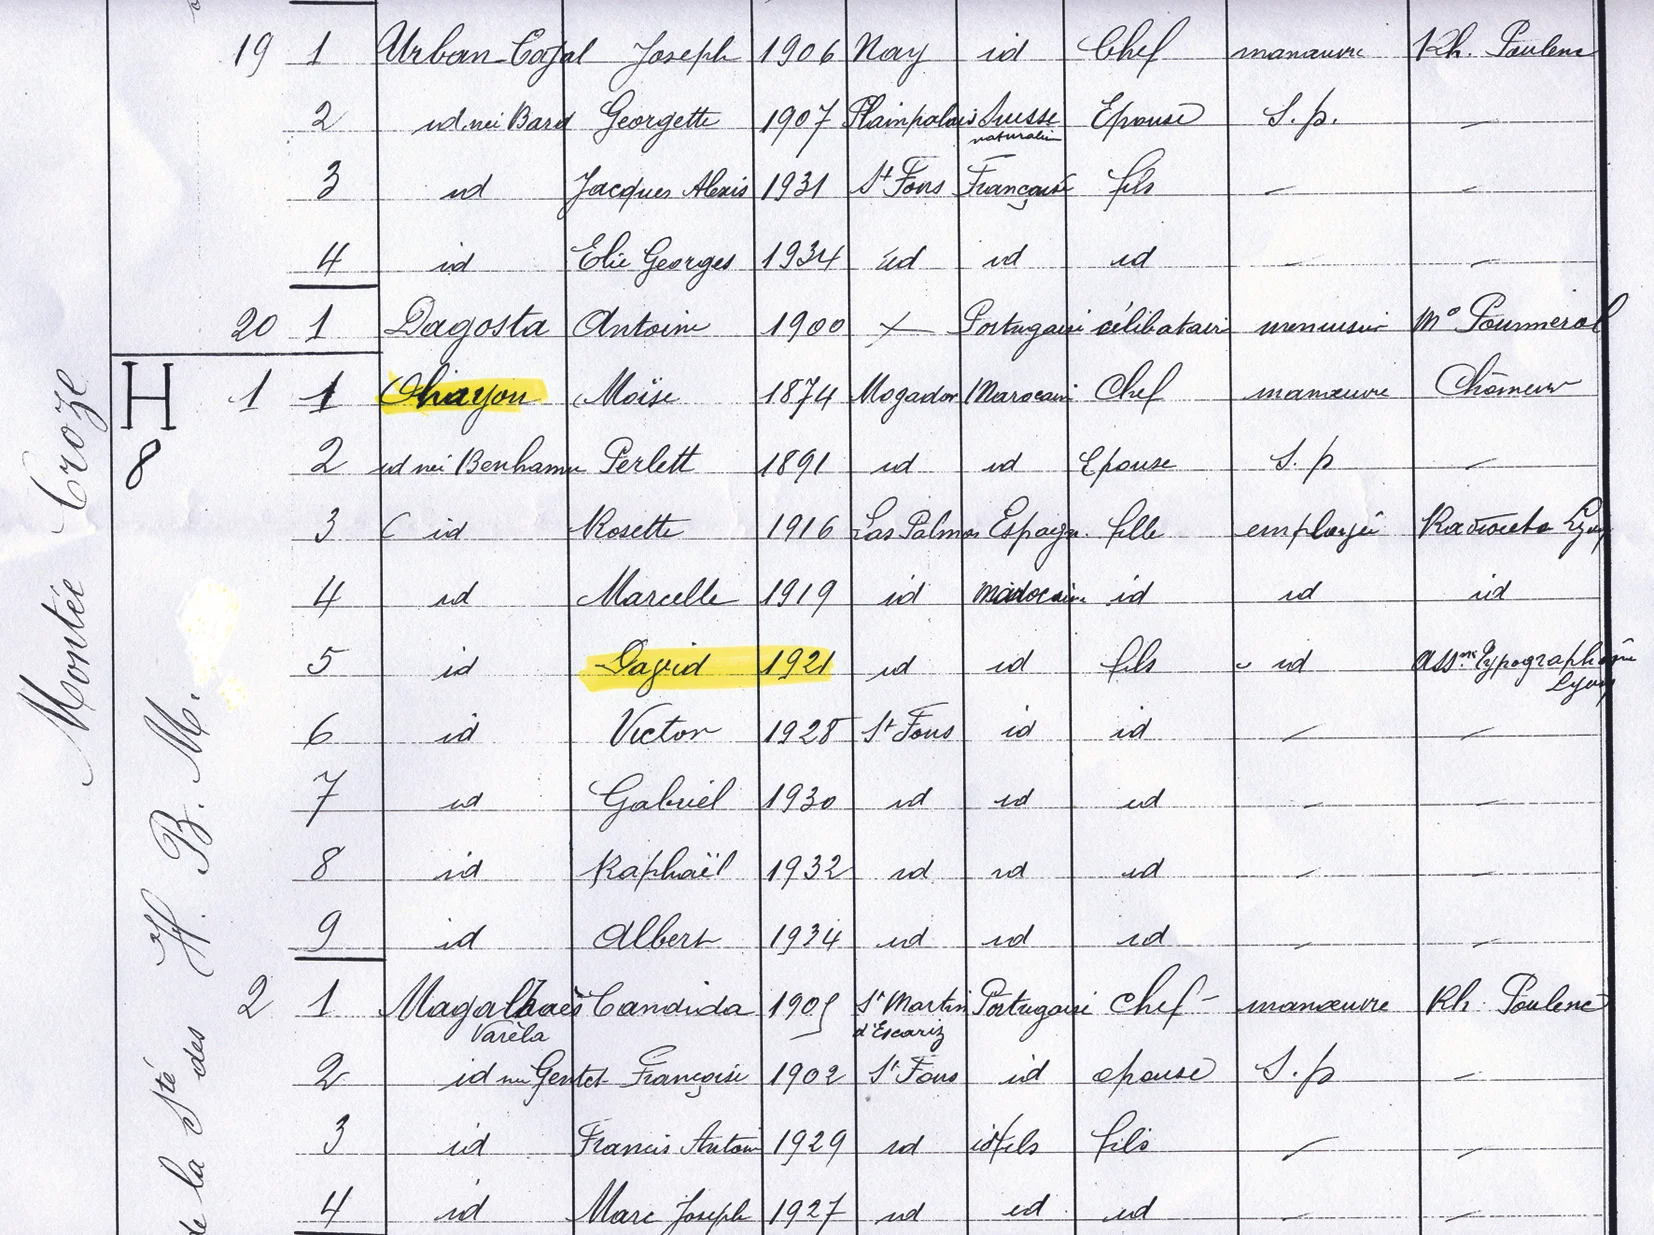 19 1 Urban-Cajal Joseph 1906 Nay id Chef manœuvre Rh. Poulenc
2 id née Bard Georgette 1907 Plainpalais Suisse Epouse S.p. –
naturalisée
3 id Jacques Alexis 1931 St Fons Française fils – –
4 id Elie Georges 1934 id id id – –
20 1 Dagosta Antoine 1900 x Portugaise célibataire menuisier Mo Pourmerol
H 8
1 1 Ohayon Moïse 1874 Mogador Marocain Chef manœuvre Chômeur
2 id née Benhamu Perlett 1891 id id Epouse S.p –
3 id Rosette 1916 Las Palmas Espagn. fille employée Lyon
4 id Marcelle 1919 id marocaine id id id
5 id David 1921 id id fils id Asson Typographique
Lyon
6 id Victor 1928 St Fons id id – –
7 id Gabriel 1930 id id id – –
8 id Raphaël 1932 id id id – –
9 id Albert 1934 id id id – –
2 1 Magalhaès Candida 1905 St Martin Portugaise Chef – manœuvre Rh. Poulenc
Varèla d'Escariz
2 id née Gentet Françoise 1902 St Fons id epouse S.p –
3 id Francis Antoine 1929 id id fils fils – –
4 id Marc Joseph 1927 id id id – –
Montée Croze
de la Sté des H. B. M.